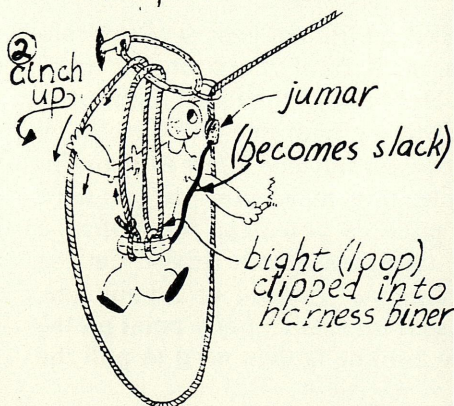 ②
cinch
up
jumar
(becomes slack)
bight (loop)
clipped into
harness biner